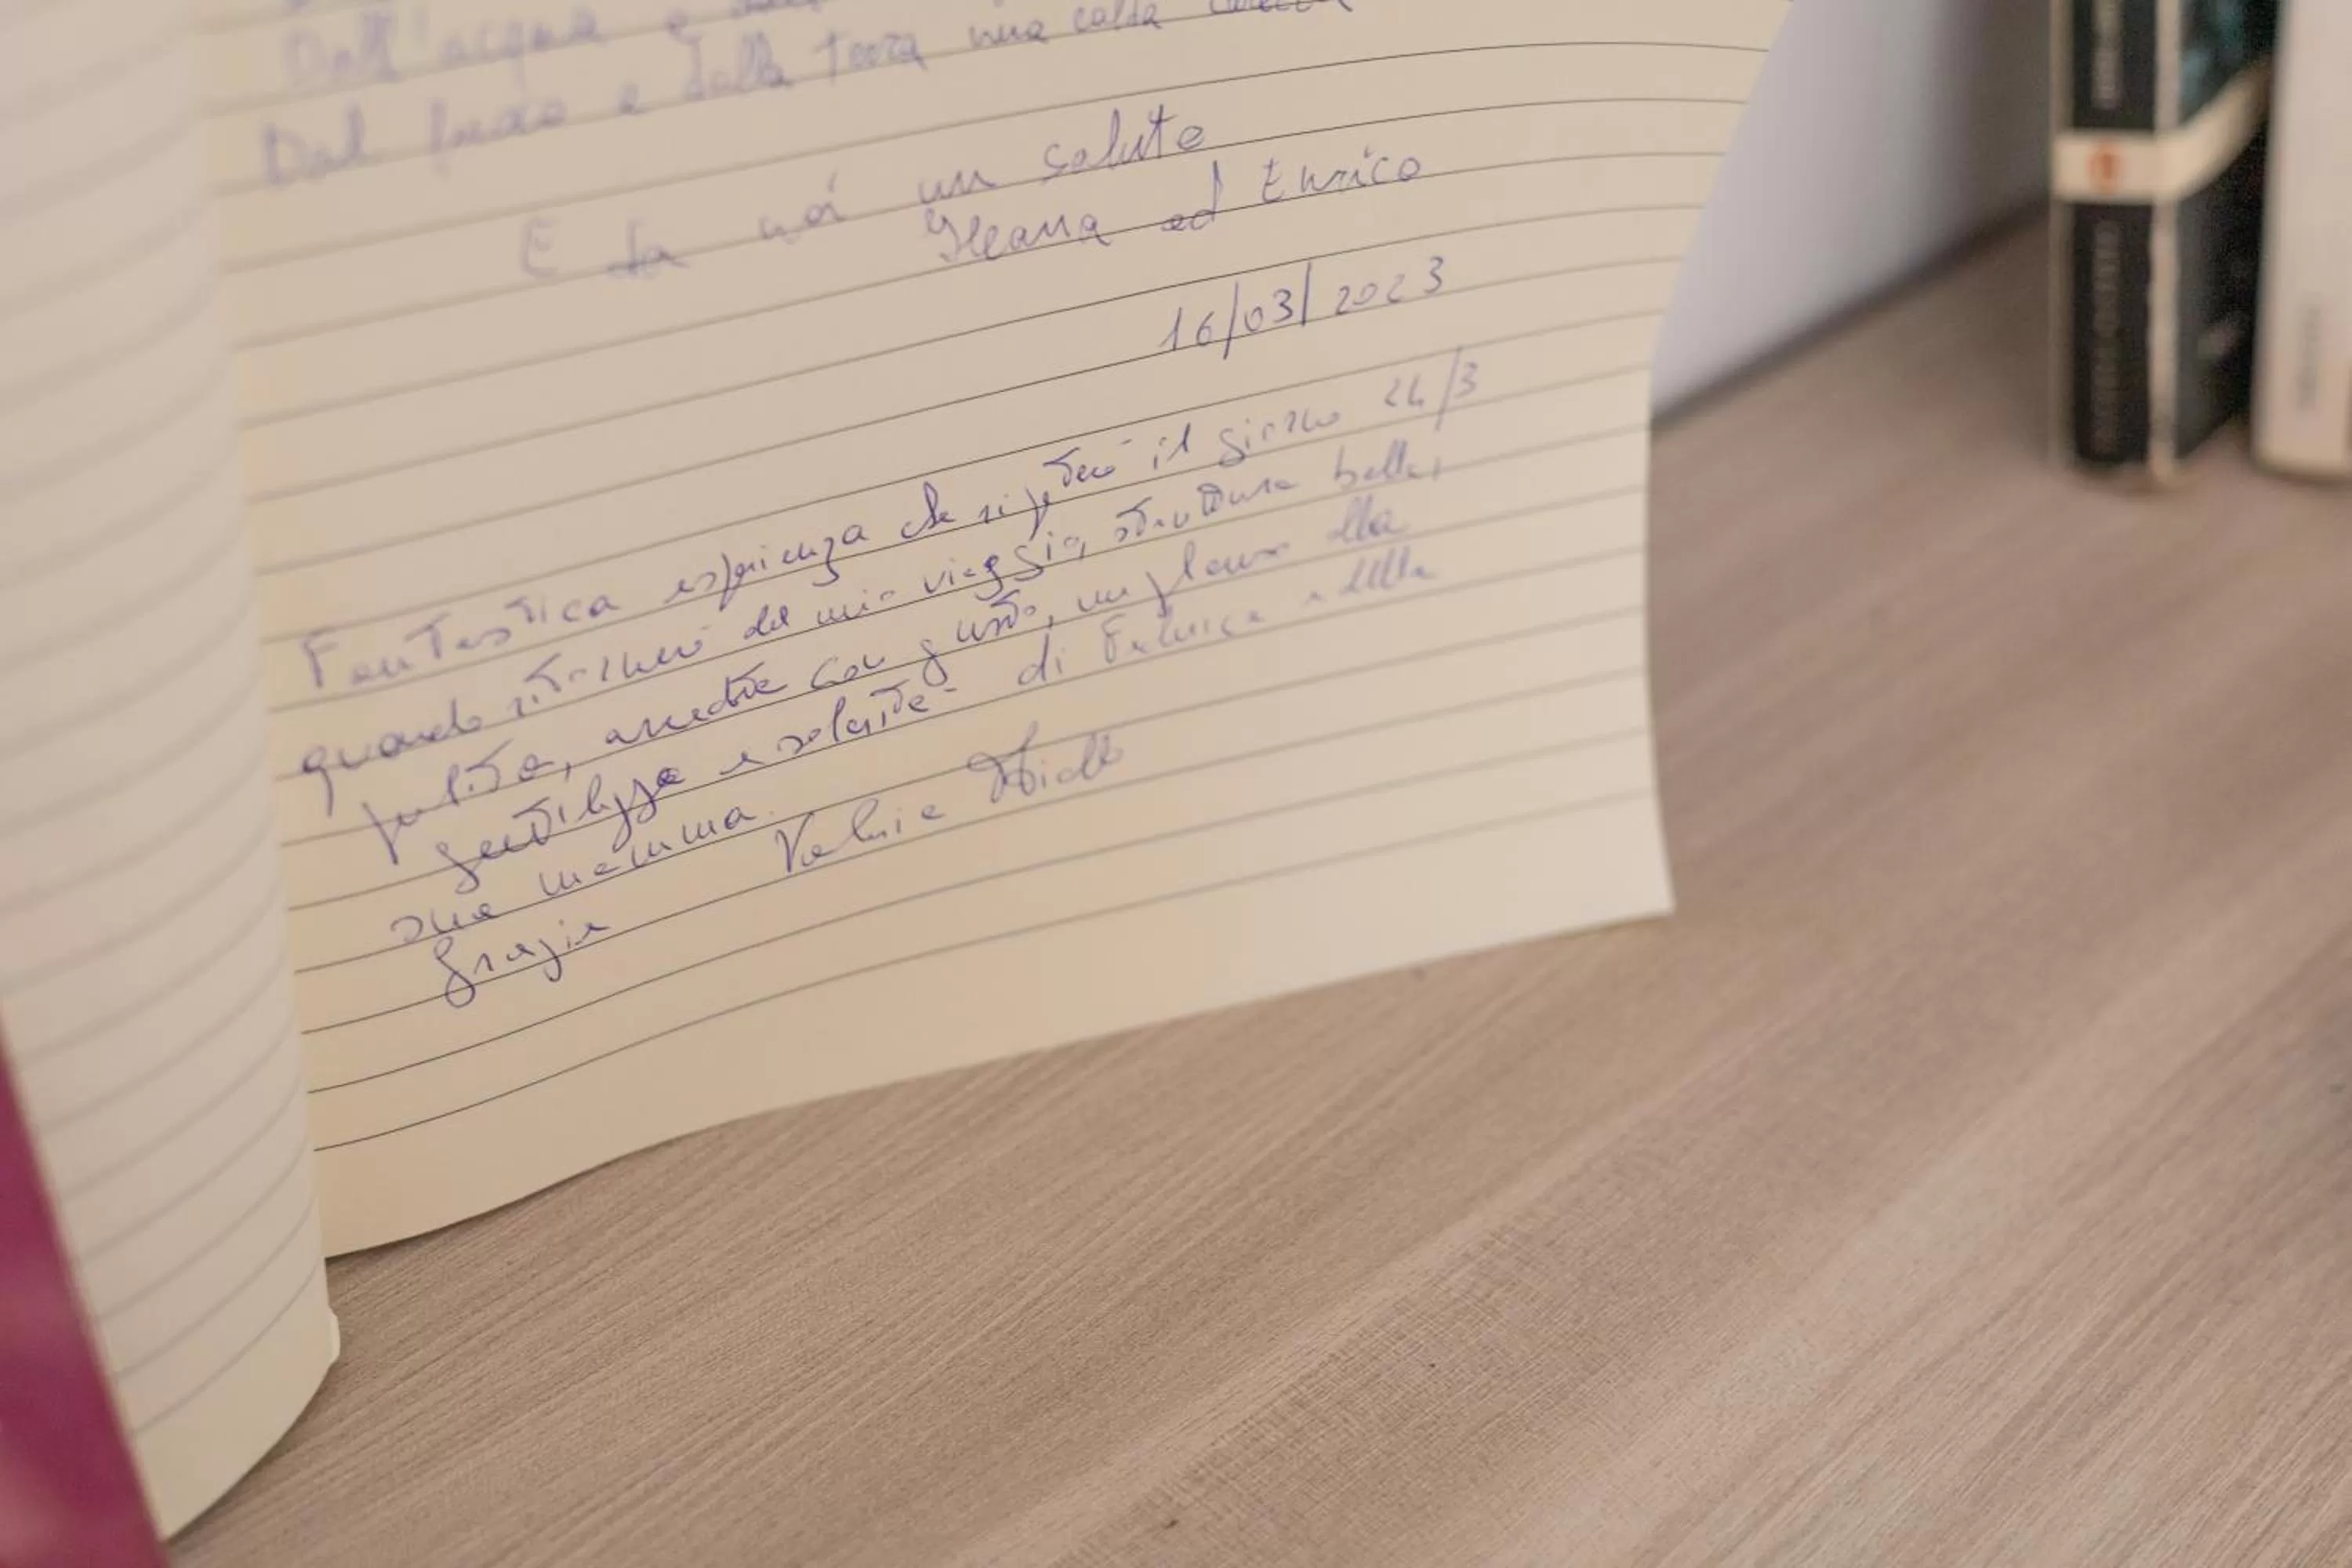 Dall'acqua e
Dal fuoco e dalla terra una calda
E da noi un saluto
Ileana ed Enrico
16/03/2023
Fantastica esperienza che ripeterò il giorno 24/3
quando ritornerò dal mio viaggio, struttura bella,
pulita, arredata con gusto, un plauso alla
gentilezza e solarità di Federica e della
sua mamma.
Grazie Valeria